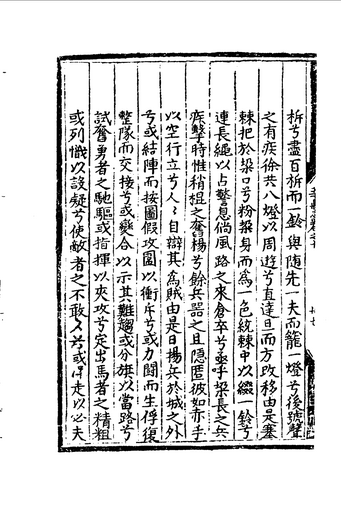 柝兮盡百柝而一鈴與随先一夫而籠一燈兮後號聲
之有疾徐共八燈以周遊兮直達旦而方攺移由是塞
棘把於梁口兮粉梁身而為一色統棘中以綴一鈴兮
連長繩以占警息倘風路之來倉卒兮亟呼梁長之兵
疾擊時惟梢棍之奮楊兮餘兵噐之且隠匿彼如赤手
以空行立兮人〻自辯其為賊由是日揚兵於城之外
兮或結陣而按圖假攻圍以衝斥兮或力鬪而生俘復
整隊而交接兮或變合以示其難趨或分旗以當路兮
試奮勇者之馳驅或指揮以夾攻兮定出馬者之精粗
或列幟以設疑兮使敵者之不敢入兮或 走以必夫